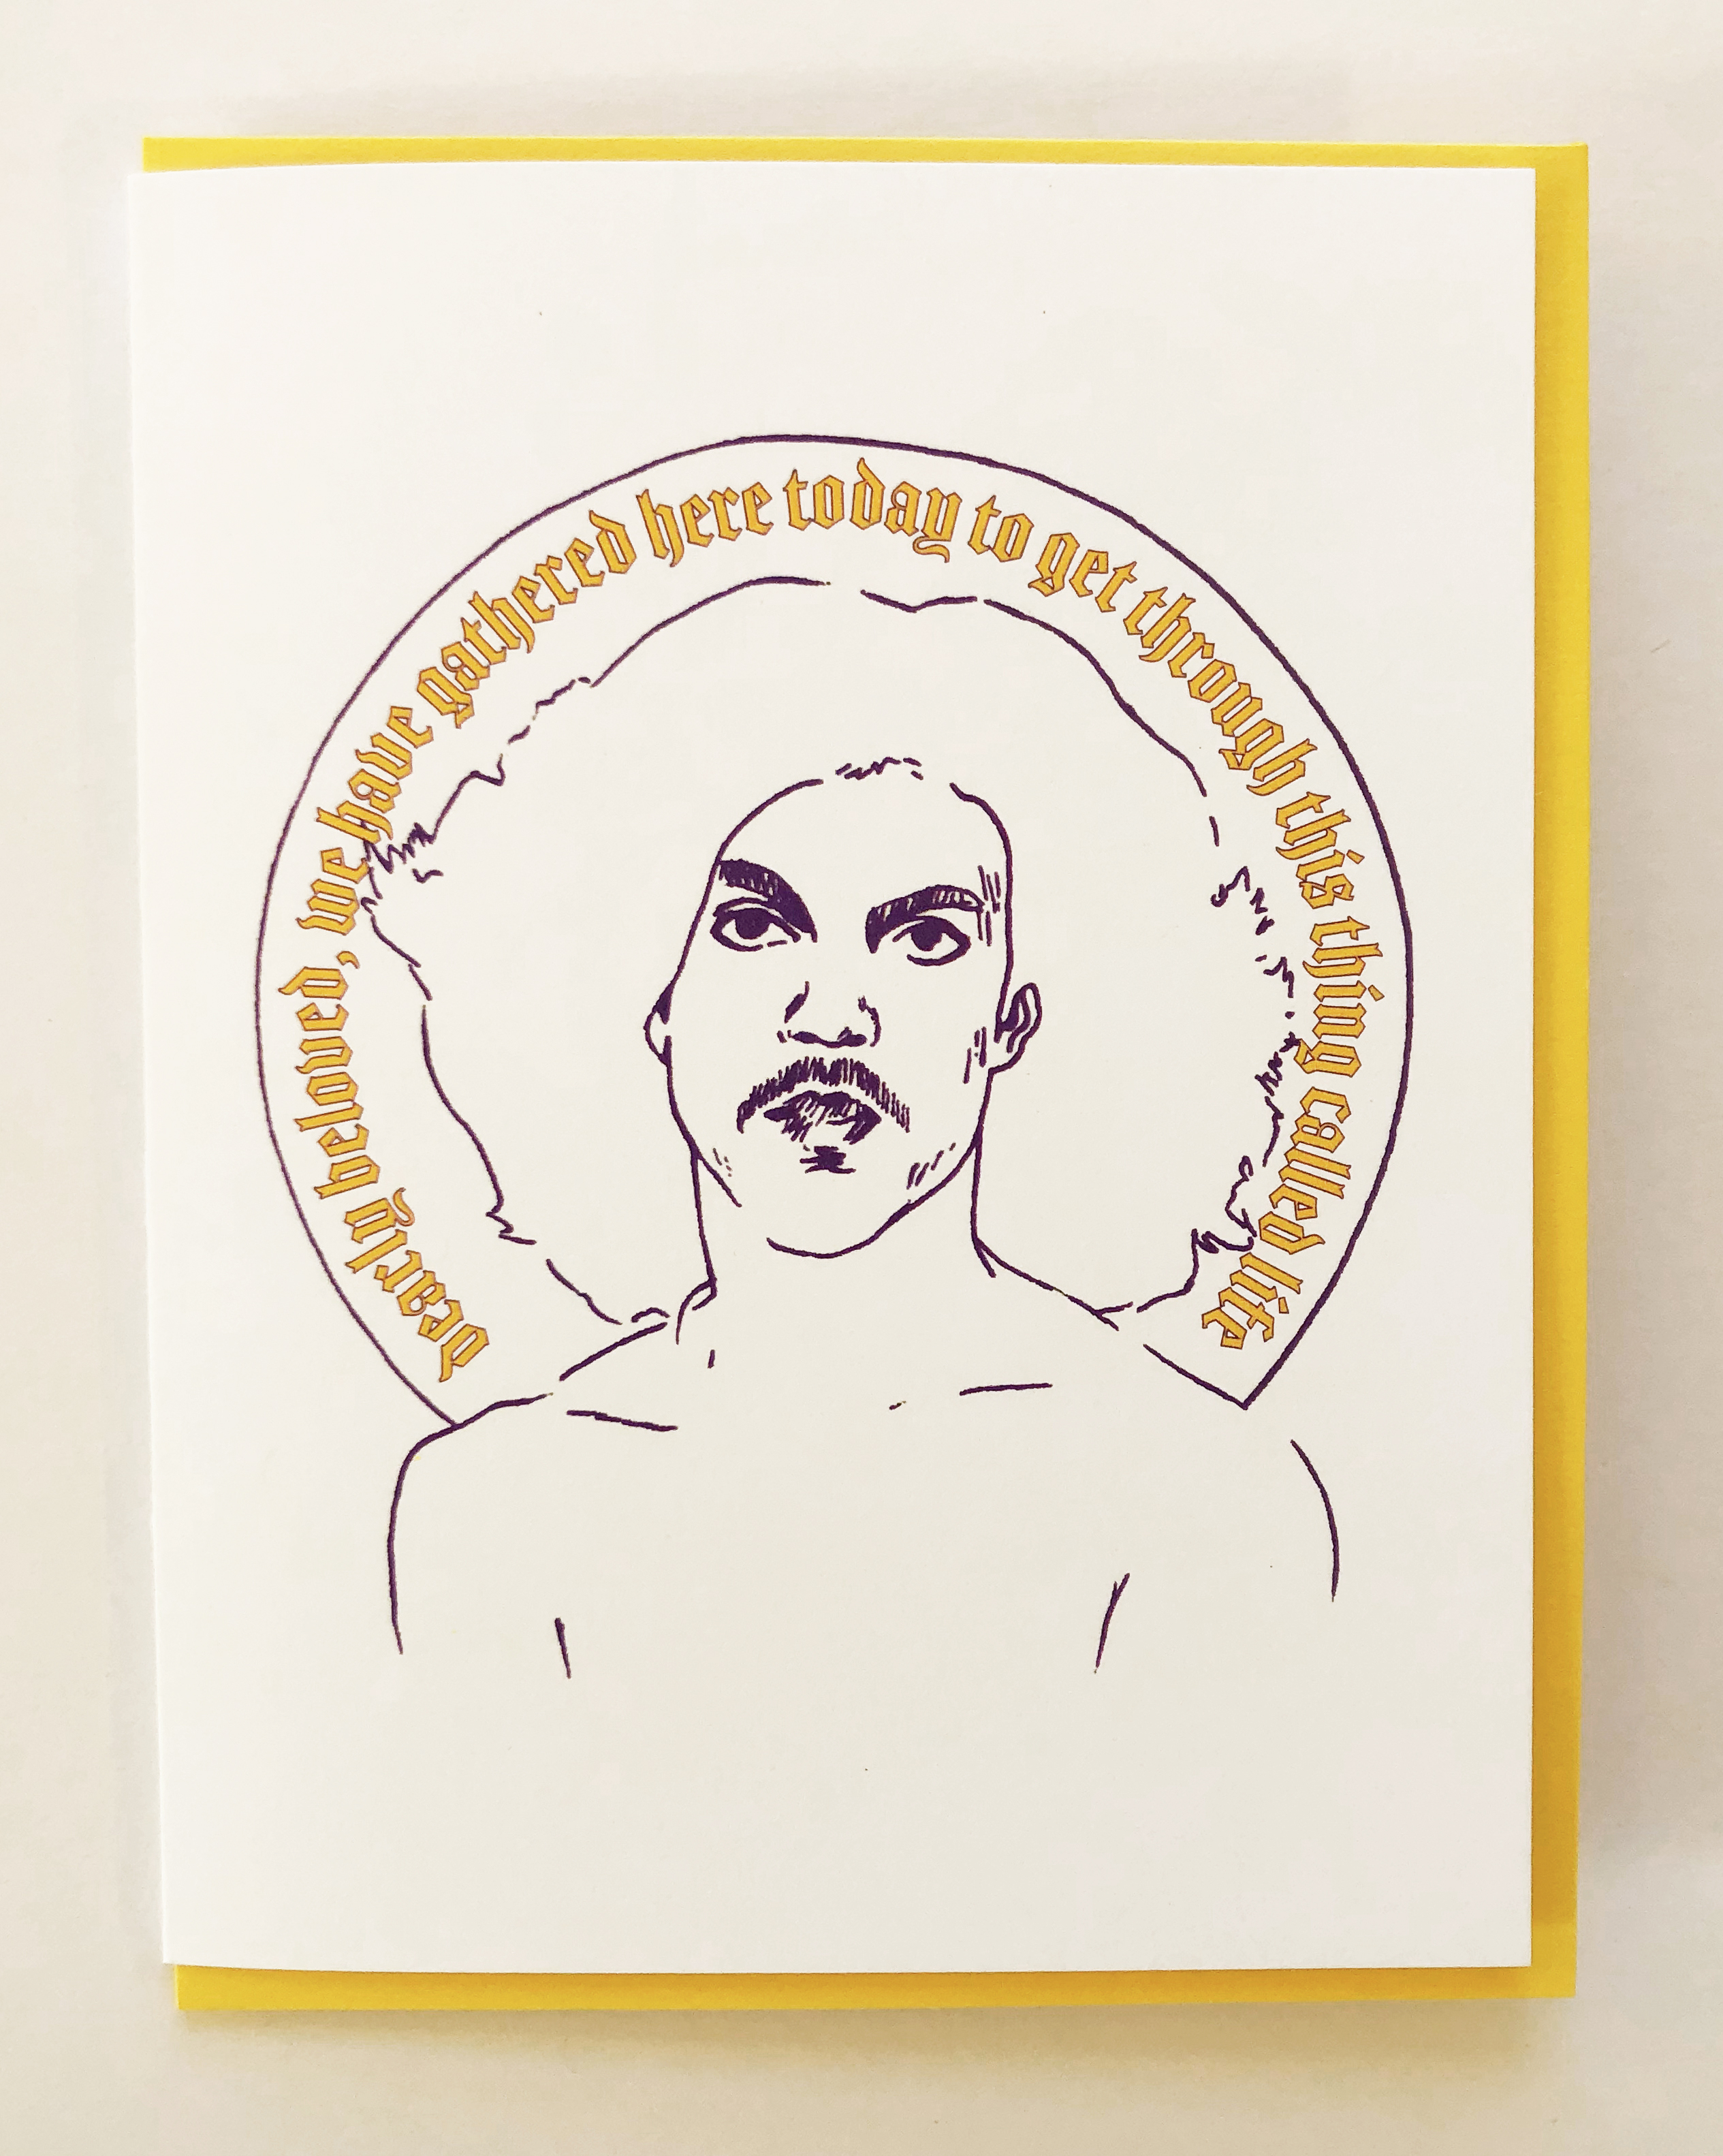 dearly beloved, we have gathered here today to get through this thing called life